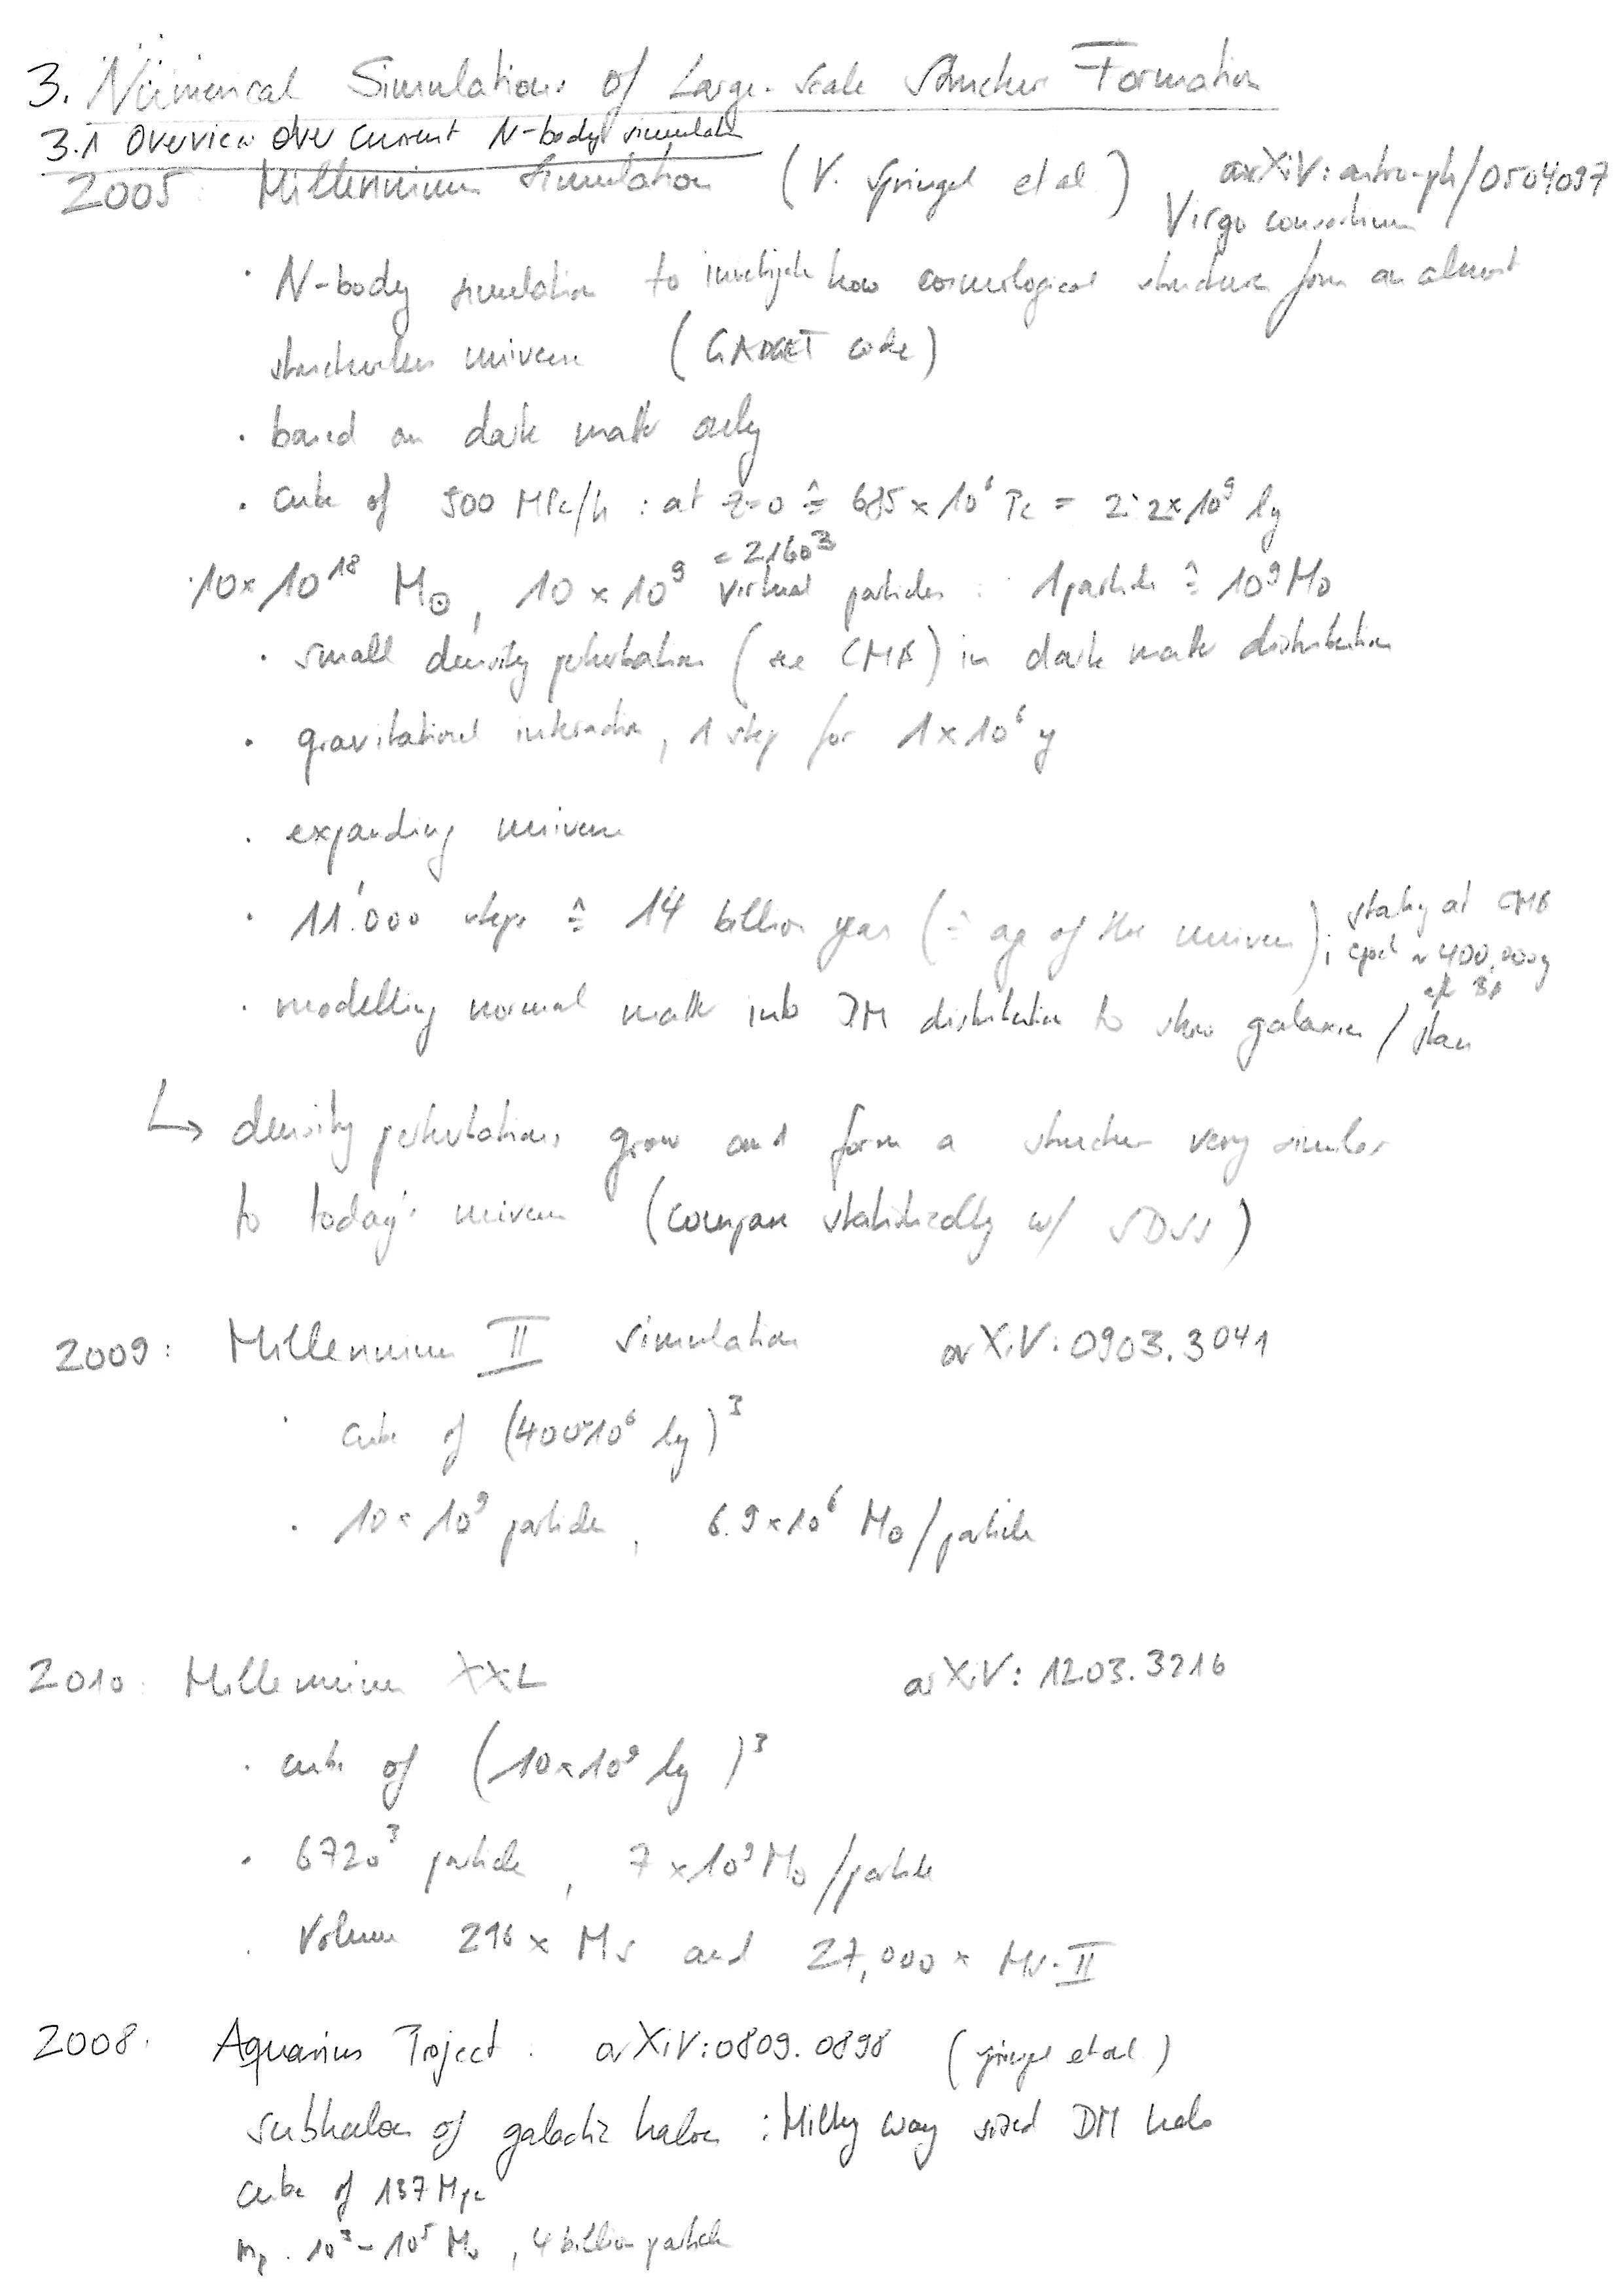 3. Numerical Simulations of Large-scale Structure Formation
3.1 Overview over current N-body simulation
2005: Millennium Simulation (V. Springel et al) arXiV: astro-ph/0504097
Virgo consortium
· N-body simulation to investigate how cosmological structures form an almost
structureless universe (GADGET code)
· based on dark matter only
· cube of 500 MPc/h : at z=0 ≙ 685 × 10⁶ Pc = 2.2×10⁹ ly
= 2160³
· 10×10¹⁸ M⊙, 10 × 10⁹ virtual particles : 1 particle ≙ 10⁹ M⊙
· small density perturbation (see CMB) in dark matter distribution
· gravitational interaction, 1 step for 1×10⁶ y
· expanding universe
· 11'000 steps ≙ 14 billion years (≙ age of the universe); starting at CMB
epoch ~ 400,000y
after BB
· modelling normal matter into DM distribution to show galaxies / stars
↳ density perturbations grow and form a structure very similar
to today's universe (compare statistically w/ SDSS)
2009: Millennium II simulation arXiV: 0903.3041
· cube of (400×10⁶ ly)³
· 10 × 10⁹ particles, 6.9×10⁶ M⊙/particle
2010: Millennium XXL arXiV: 1203.3216
· cube of (10×10⁹ ly)³
· 6720³ particle, 7×10⁹ M⊙/particle
· Volume 216 × MS and 27,000 × MS-II
2008: Aquarius Project : arXiV:0809.0898 (Springel et al)
subhalos of galactic halos : Milky way sized DM halo
cube of 137 Mpc
mp : 10³ - 10⁵ M⊙, 4 billion particle